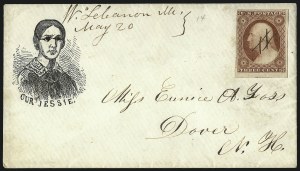 W. Lebanon Me.
May 20
14
U.S. POSTAGE
THREE CENTS
OUR JESSIE.
Miss Eunice A. Goss
Dover
N. H.